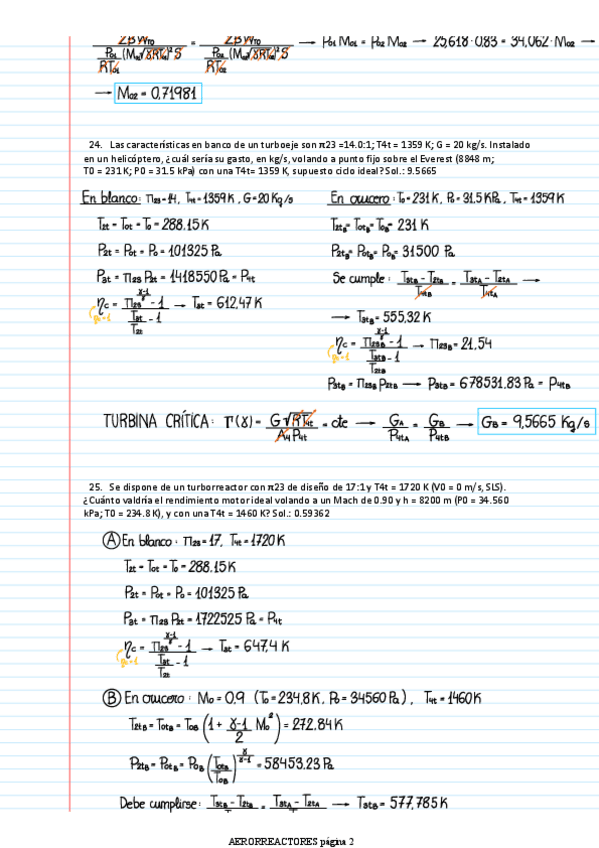 2β W_TO / (P01/RT01 (M01 √γRT01)² S) = 2β W_TO / (P02/RT02 (M02 √γRT02)² S) → P01 M01 = P02 M02 → 25,618 · 0,83 = 34,062 · M02 →
→ M02 = 0,71981
24. Las características en banco de un turboeje son π23 =14.0:1; T4t = 1359 K; G = 20 kg/s. Instalado
en un helicóptero, ¿cuál sería su gasto, en kg/s, volando a punto fijo sobre el Everest (8848 m;
T0 = 231 K; P0 = 31.5 kPa) con una T4t= 1359 K, supuesto ciclo ideal? Sol.: 9.5665
En blanco: Π23 = 14, T4t = 1359K, G = 20 Kg/s
En crucero: T0 = 231 K, P0 = 31.5 KPa, T4t = 1359 K
T2t = T0t = T0 = 288.15K
T2tB = T0tB = T0B = 231 K
P2t = P0t = P0 = 101325 Pa
P2tB = P0tB = P0B = 31500 Pa
P3t = Π23 P2t = 1418550 Pa = P4t
Se cumple: (T3tB - T2tB)/T4tB = (T3tA - T2tA)/T4tA →
ηc = (Π23^((γ-1)/γ) - 1)/(T3t/T2t - 1) → T3t = 612,47 K
ηc=1
→ T3tB = 555,32 K
ηc = (Π23B^((γ-1)/γ) - 1)/(T3tB/T2tB - 1) → Π23B = 21,54
ηc=1
P3tB = Π23B P2tB → P3tB = 678531.83 Pa = P4tB
TURBINA CRÍTICA: Γ(γ) = G√RT4t / A4P4t = cte → GA/P4tA = GB/P4tB → GB = 9,5665 Kg/s
25. Se dispone de un turborreactor con π23 de diseño de 17:1 y T4t = 1720 K (V0 = 0 m/s, SLS).
¿Cuánto valdría el rendimiento motor ideal volando a un Mach de 0.90 y h = 8200 m (P0 = 34.560
kPa; T0 = 234.8 K), y con una T4t = 1460 K? Sol.: 0.59362
A En blanco: Π23 = 17, T4t = 1720 K
T2t = T0t = T0 = 288.15K
P2t = P0t = P0 = 101325 Pa
P3t = Π23 P2t = 1722525 Pa = P4t
ηc = (Π23^((γ-1)/γ) - 1)/(T3t/T2t - 1) → T3t = 647,4 K
ηc=1
B En crucero: M0 = 0,9 (T0 = 234,8K, P0 = 34560 Pa), T4t = 1460K
T2tB = T0tB = T0B (1 + (γ-1)/2 M0²) = 272.84 K
P2tB = P0tB = P0B (T0tB/T0B)^(γ/(γ-1)) = 58453.23 Pa
Debe cumplirse: T3tB - T2tB = T3tA - T2tA → T3tB = 577,785 K
AERORREACTORES página 2